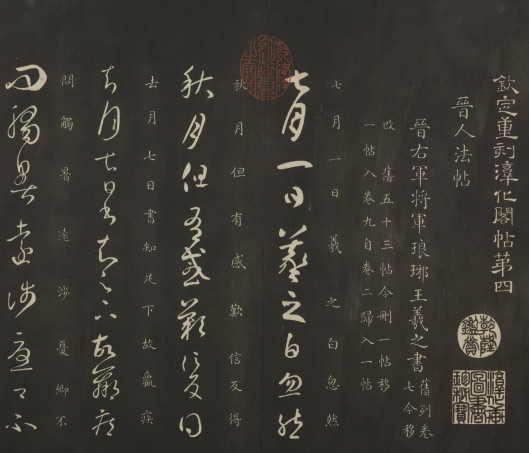 欽定重刻淳化閣帖第四
晉人法帖
晉右軍將軍琅琊王羲之書
舊列卷
七今移
改舊五十三帖今刪一帖移
一帖入卷九自卷二歸入一帖
七月一日羲之白忽然
七月一日羲之白忽然
秋月但有感歎信反得
秋月但有感歎信反得
去月七日書知足下故羸疾
去月七日書知足下故羸疾
問觸暑遠涉憂卿不
問觸暑遠涉憂卿不
乾隆鑑賞